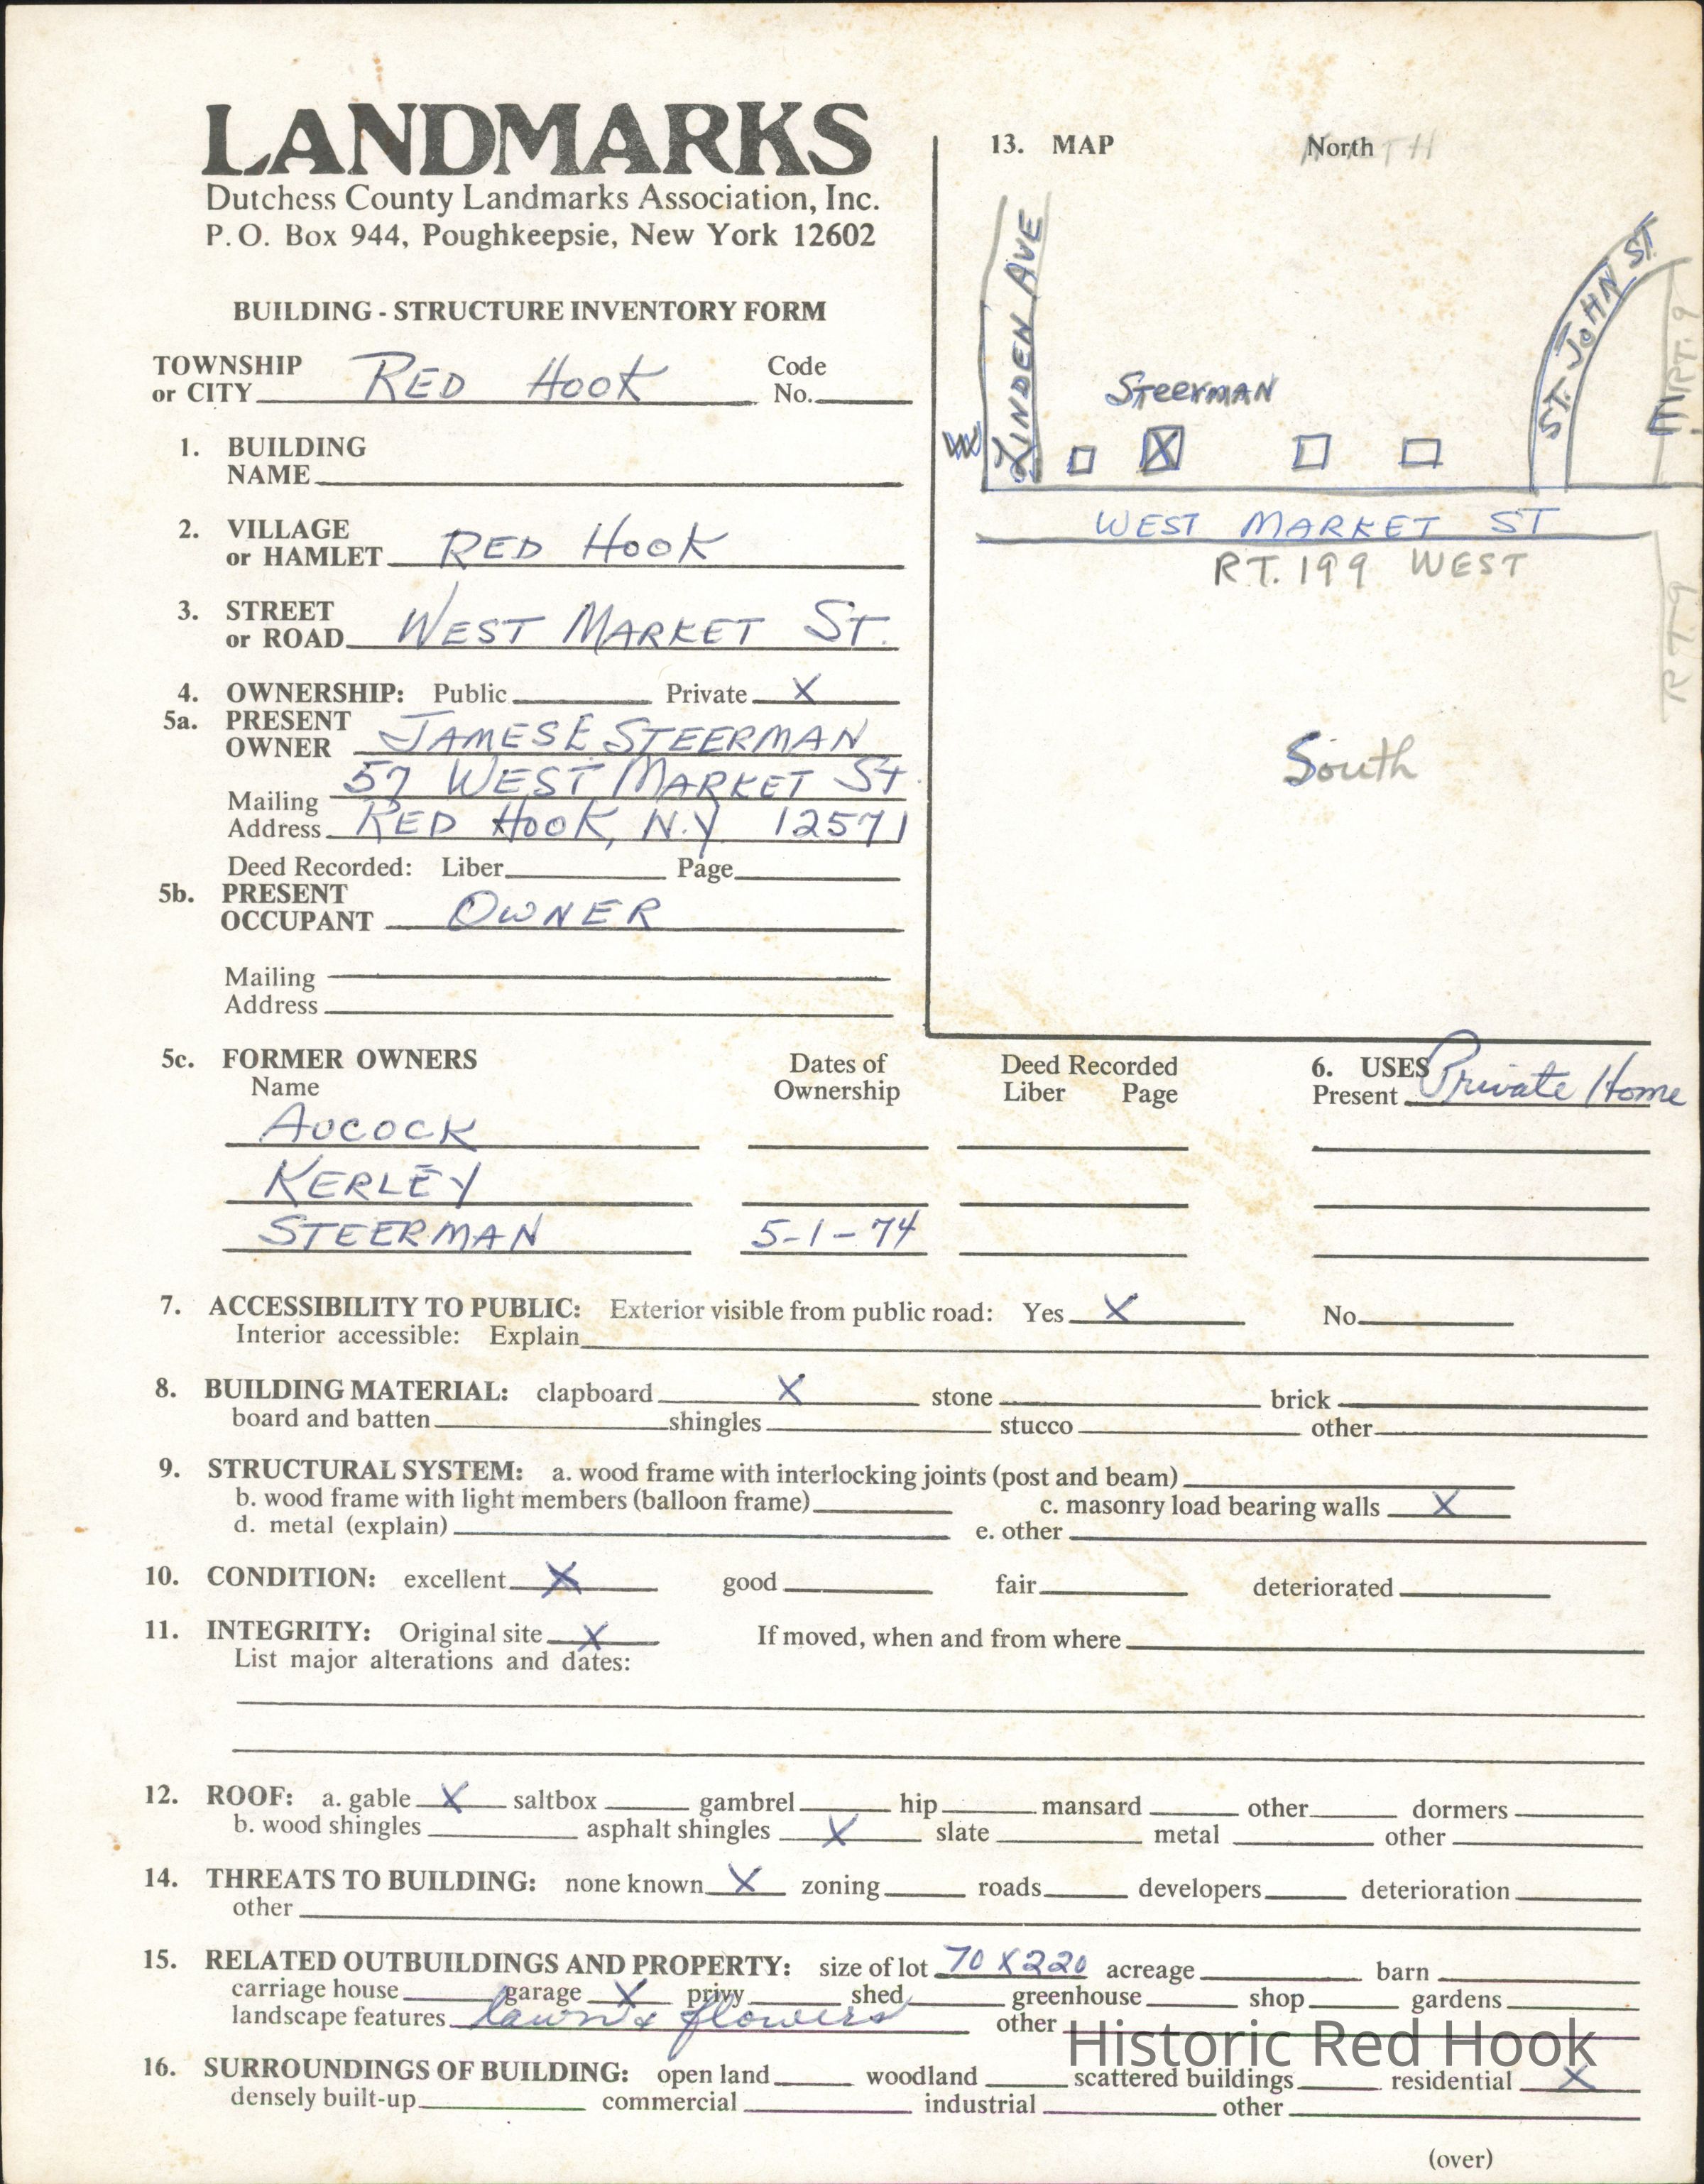 LANDMARKS
Dutchess County Landmarks Association, Inc.
P.O. Box 944, Poughkeepsie, New York 12602
BUILDING - STRUCTURE INVENTORY FORM
TOWNSHIP
or CITY RED HOOK Code No.
1. BUILDING
NAME
2. VILLAGE
or HAMLET RED HOOK
3. STREET
or ROAD WEST MARKET ST.
4. OWNERSHIP: Public Private X
5a. PRESENT
OWNER JAMES E STEERMAN
57 WEST MARKET ST
Mailing
Address RED HOOK, N.Y 12571
Deed Recorded: Liber Page
5b. PRESENT
OCCUPANT OWNER
Mailing
Address
13. MAP North
LINDEN AVE
ST. JOHN ST
RT. 9
Steerman
W
X
E
WEST MARKET ST
RT. 199 WEST
RT 9
South
5c. FORMER OWNERS Dates of Deed Recorded
Name Ownership Liber Page
AUCOCK
KERLEY
STEERMAN 5-1-74
6. USES
Present Private Home
7. ACCESSIBILITY TO PUBLIC: Exterior visible from public road: Yes X No
Interior accessible: Explain
8. BUILDING MATERIAL: clapboard X stone brick
board and batten shingles stucco other
9. STRUCTURAL SYSTEM: a. wood frame with interlocking joints (post and beam)
b. wood frame with light members (balloon frame) c. masonry load bearing walls X
d. metal (explain) e. other
10. CONDITION: excellent X good fair deteriorated
11. INTEGRITY: Original site X If moved, when and from where
List major alterations and dates:
12. ROOF: a. gable X saltbox gambrel hip mansard other dormers
b. wood shingles asphalt shingles X slate metal other
14. THREATS TO BUILDING: none known X zoning roads developers deterioration
other
15. RELATED OUTBUILDINGS AND PROPERTY: size of lot 70 X 220 acreage barn
carriage house garage X privy shed greenhouse shop gardens
landscape features lawn & flowers other
Historic Red Hook
16. SURROUNDINGS OF BUILDING: open land woodland scattered buildings residential X
densely built-up commercial industrial other
(over)